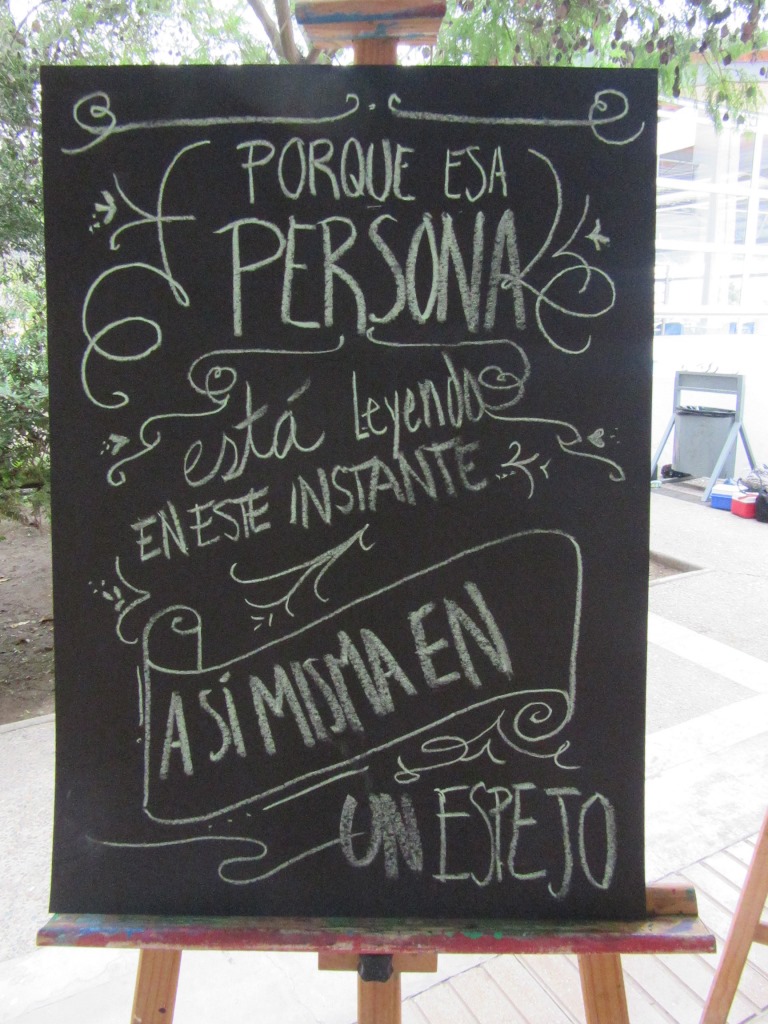 PORQUE ESA
PERSONA
está Leyendo
EN ESTE INSTANTE
A SÍ MISMA EN
UN ESPEJO